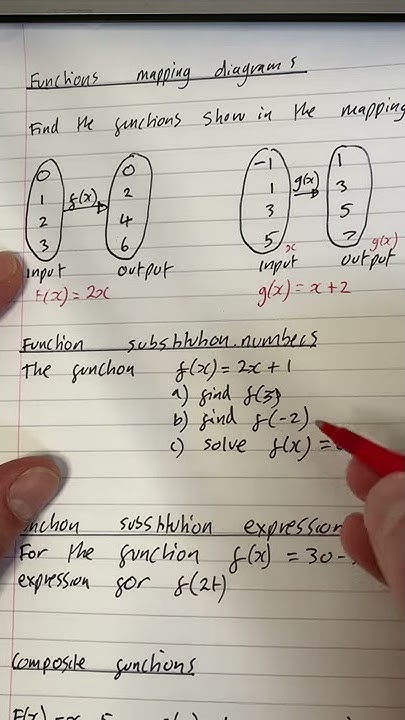 Functions mapping diagrams
Find the functions show in the mapping
0 0 -1 1
1 f(x) 2 1 g(x) 3
2 4 3 5
3 6 5 x 7 g(x)
input output input output
F(x) = 2x g(x) = x + 2
Function substitution numbers
The function f(x) = 2x + 1
a) find f(3)
b) find f(-2)
c) solve f(x) =
substitution expression
For the function f(x) = 30 -
expression for f(2t)
Composite functions